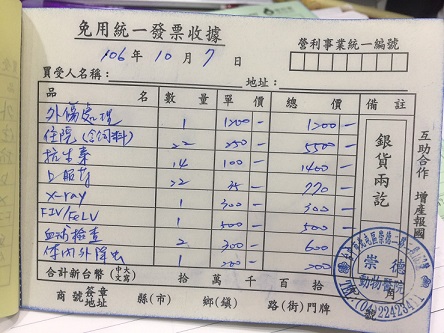 免用統一發票收據
營利事業統一編號
106年10月7日
買受人名稱： 地址：
品名 數量 單價 總價 備註
外傷處理 1 1200- 1200-
住院(含飼料) 22 250 550-
抗生素 14 100 1400-
口服藥 22 35 770-
x-ray 1 300 300-
FIV/FeLV 1 500 500-
血液檢查 2 300 600-
體內外除虫 1 200 200-
銀貨兩訖
互助合作 增產報國
合計新台幣(中文大寫) 拾 萬 千 百 拾
商號簽章 地址 縣(市) 鄉(鎮) 路(街)門牌 號
崇德
動物醫院